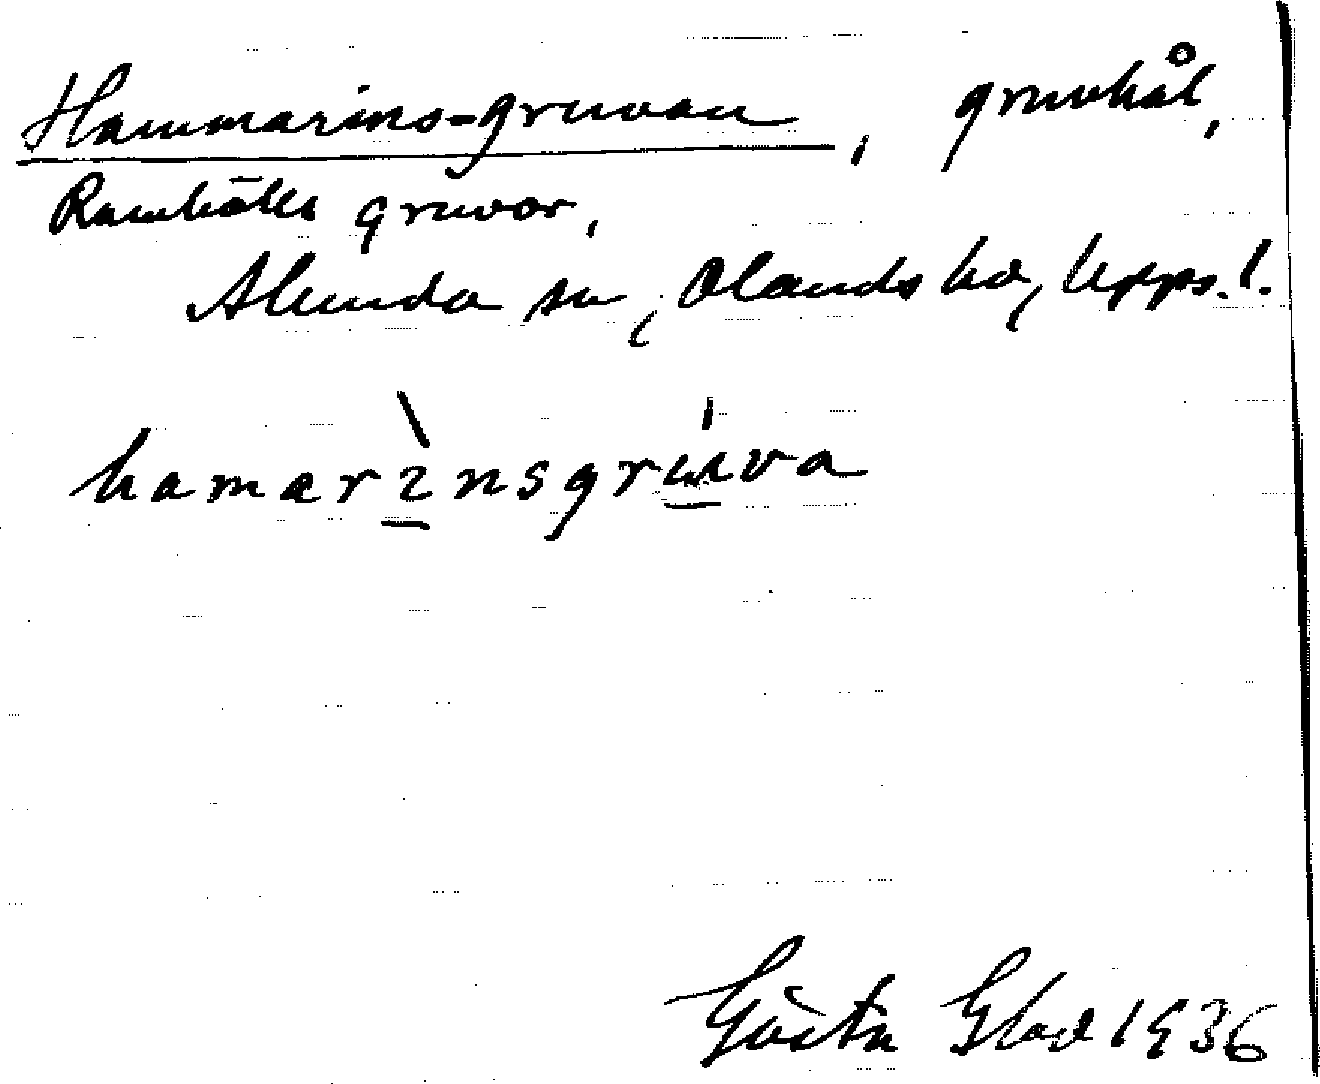 Hammarins-gruvan, gruvhål,
Ramhälls gruvor,
Alunda sn, Olands hd, Upps. l.
hamarinsgruva
Gösta Glad 1936